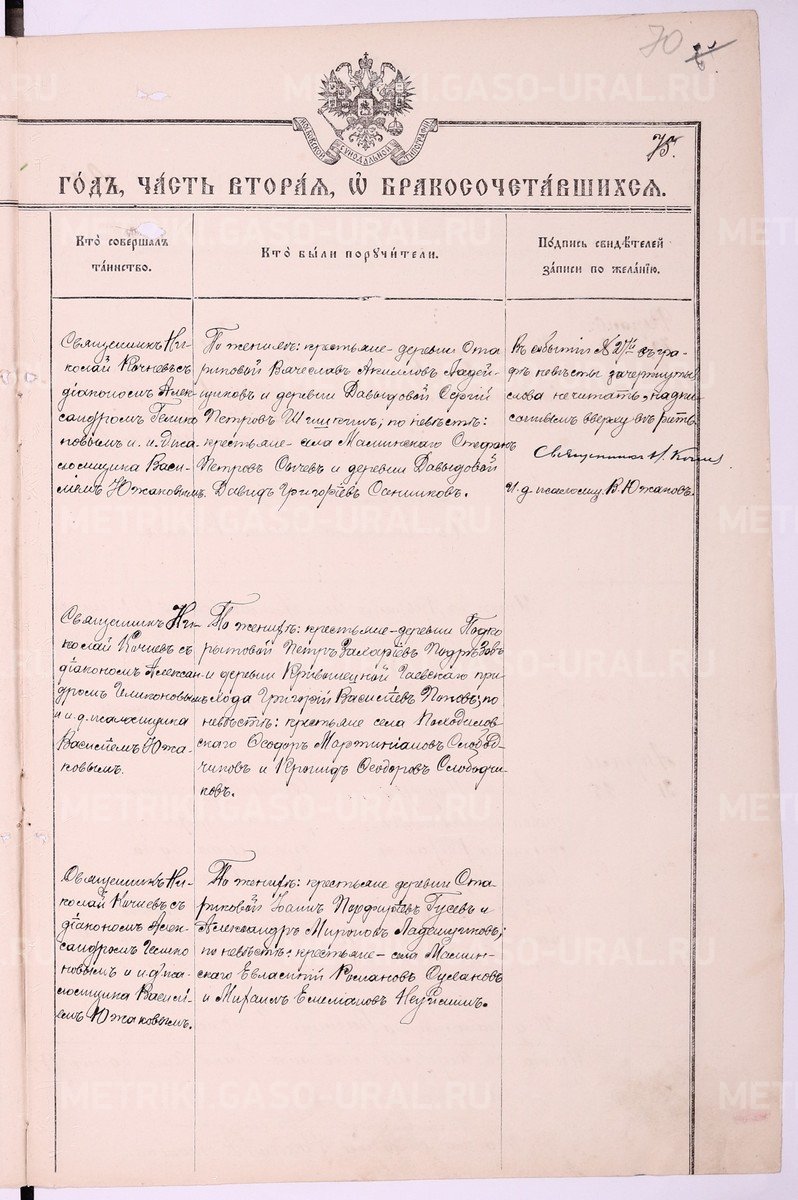 70
75.
МОСКОВСКОЙ СУНОДАЛЬНОЙ ТИПОГРАФІИ
ГОДЪ, ЧАСТЬ ВТОРАЯ, Ѡ БРАКОСОЧЕТАВШИХСЯ.
Кто совершалъ
таинство.
Кто были поручители.
Подпись свидѣтелей
записи по желанію.
Священникъ Ни-
колай Кочневъ съ
діакономъ Алек-
сандромъ Гелико-
новымъ и и. д. пса-
ломщика Васи-
ліемъ Южаковымъ.
По женихѣ: крестьяне- деревни Ста-
риковой Вячеславъ Акиловъ Ладей-
щиковъ и деревни Давыдовой Сергій
Петровъ по невѣстѣ:
крестьяне- села Маминскаго Стефанъ
Петровъ Сычевъ и деревни Давыдовой
Давидъ Григоріевъ Осинцовъ.
Въ событіи № 27й въ гра-
фѣ невѣсты зачеркнуты
слова не читать, надпи-
санному вверху вѣрить.
Священникъ Н. Кочнев
И. д. псаломщ. В. Южаковъ.
Священникъ Ни-
колай Кочневъ съ
діакономъ Алексан-
дромъ Геликоновымъ
и и. д. псаломщика
Василіемъ Южа-
ковымъ.
По женихѣ: крестьяне- деревни Подко-
рытовой Петръ Захаріевъ
и деревни Гаевскаго при-
хода Григорій Василіевъ Поповъ; по
невѣстѣ: крестьяне села Колюдилов-
скаго Ѳеодоръ Мартиніановъ Слобод-
чиковъ и Ѳеодоровъ Слободчи-
ковъ.
Священникъ Ни-
колай Кочневъ съ
діакономъ Алек-
сандромъ Гелико-
новымъ и и. д. пса-
ломщика Васили-
емъ Южаковымъ.
По женихѣ: крестьяне деревни Ста-
риковой Іоаннъ Порфиріевъ Гусевъ и
Александръ Мироновъ Ладейщиковъ;
по невѣстѣ: крестьяне- села Мамин-
скаго Евлампій Романовъ Сулановъ
и Емельяновъ
METRIKI.GASO-URAL.RU